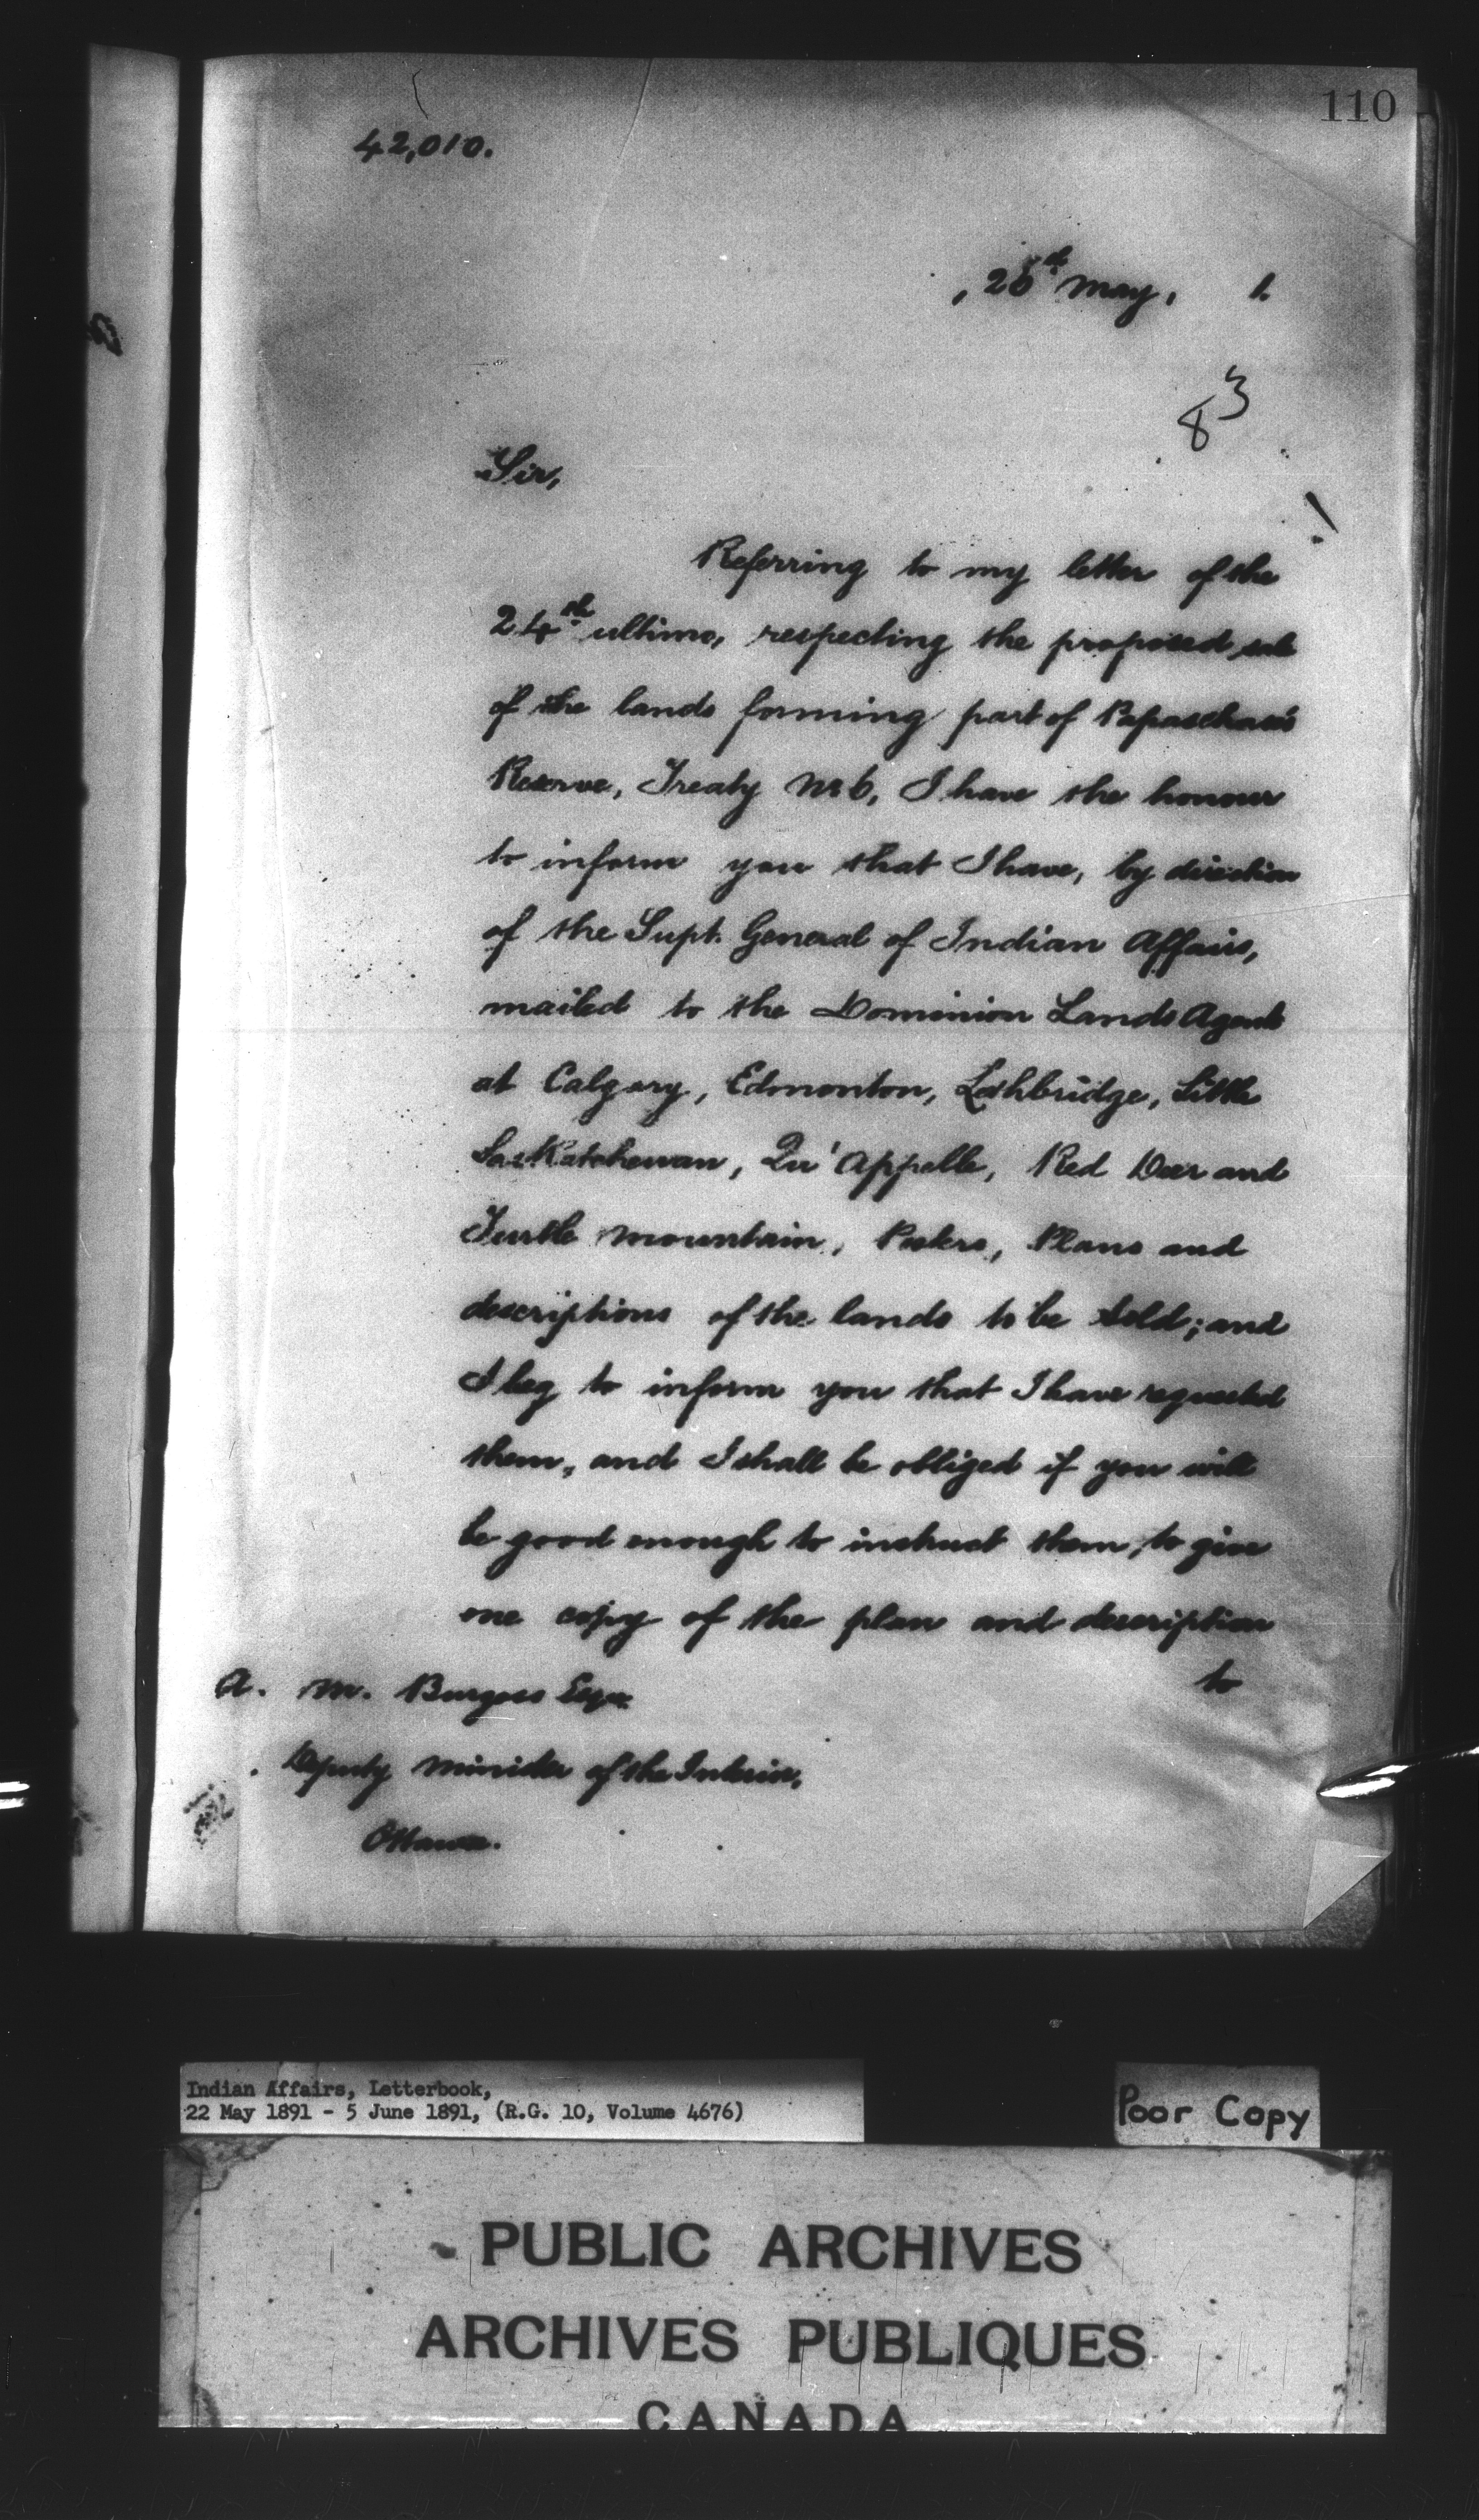 110
42,010.
, 26th May, 1.
83
Sir,
Referring to my letter of the
24th ultimo, respecting the proposed sale
of the lands forming part of Papaschase's
Reserve, Treaty No 6, I have the honour
to inform you that I have, by direction
of the Supt. General of Indian Affairs,
mailed to the Dominion Lands Agents
at Calgary, Edmonton, Lethbridge, Little
Saskatchewan, Qu'Appelle, Red Deer and
Turtle Mountain, Posters, Plans and
descriptions of the lands to be sold; and
I beg to inform you that I have requested
them, and I shall be obliged if you will
be good enough to instruct them, to give
one copy of the plan and description
to
A. M. Burgess Esqre.
Deputy Minister of the Interior,
Ottawa.
Indian Affairs, Letterbook,
22 May 1891 - 5 June 1891, (R.G. 10, Volume 4676)
Poor Copy
PUBLIC ARCHIVES
ARCHIVES PUBLIQUES
CANADA